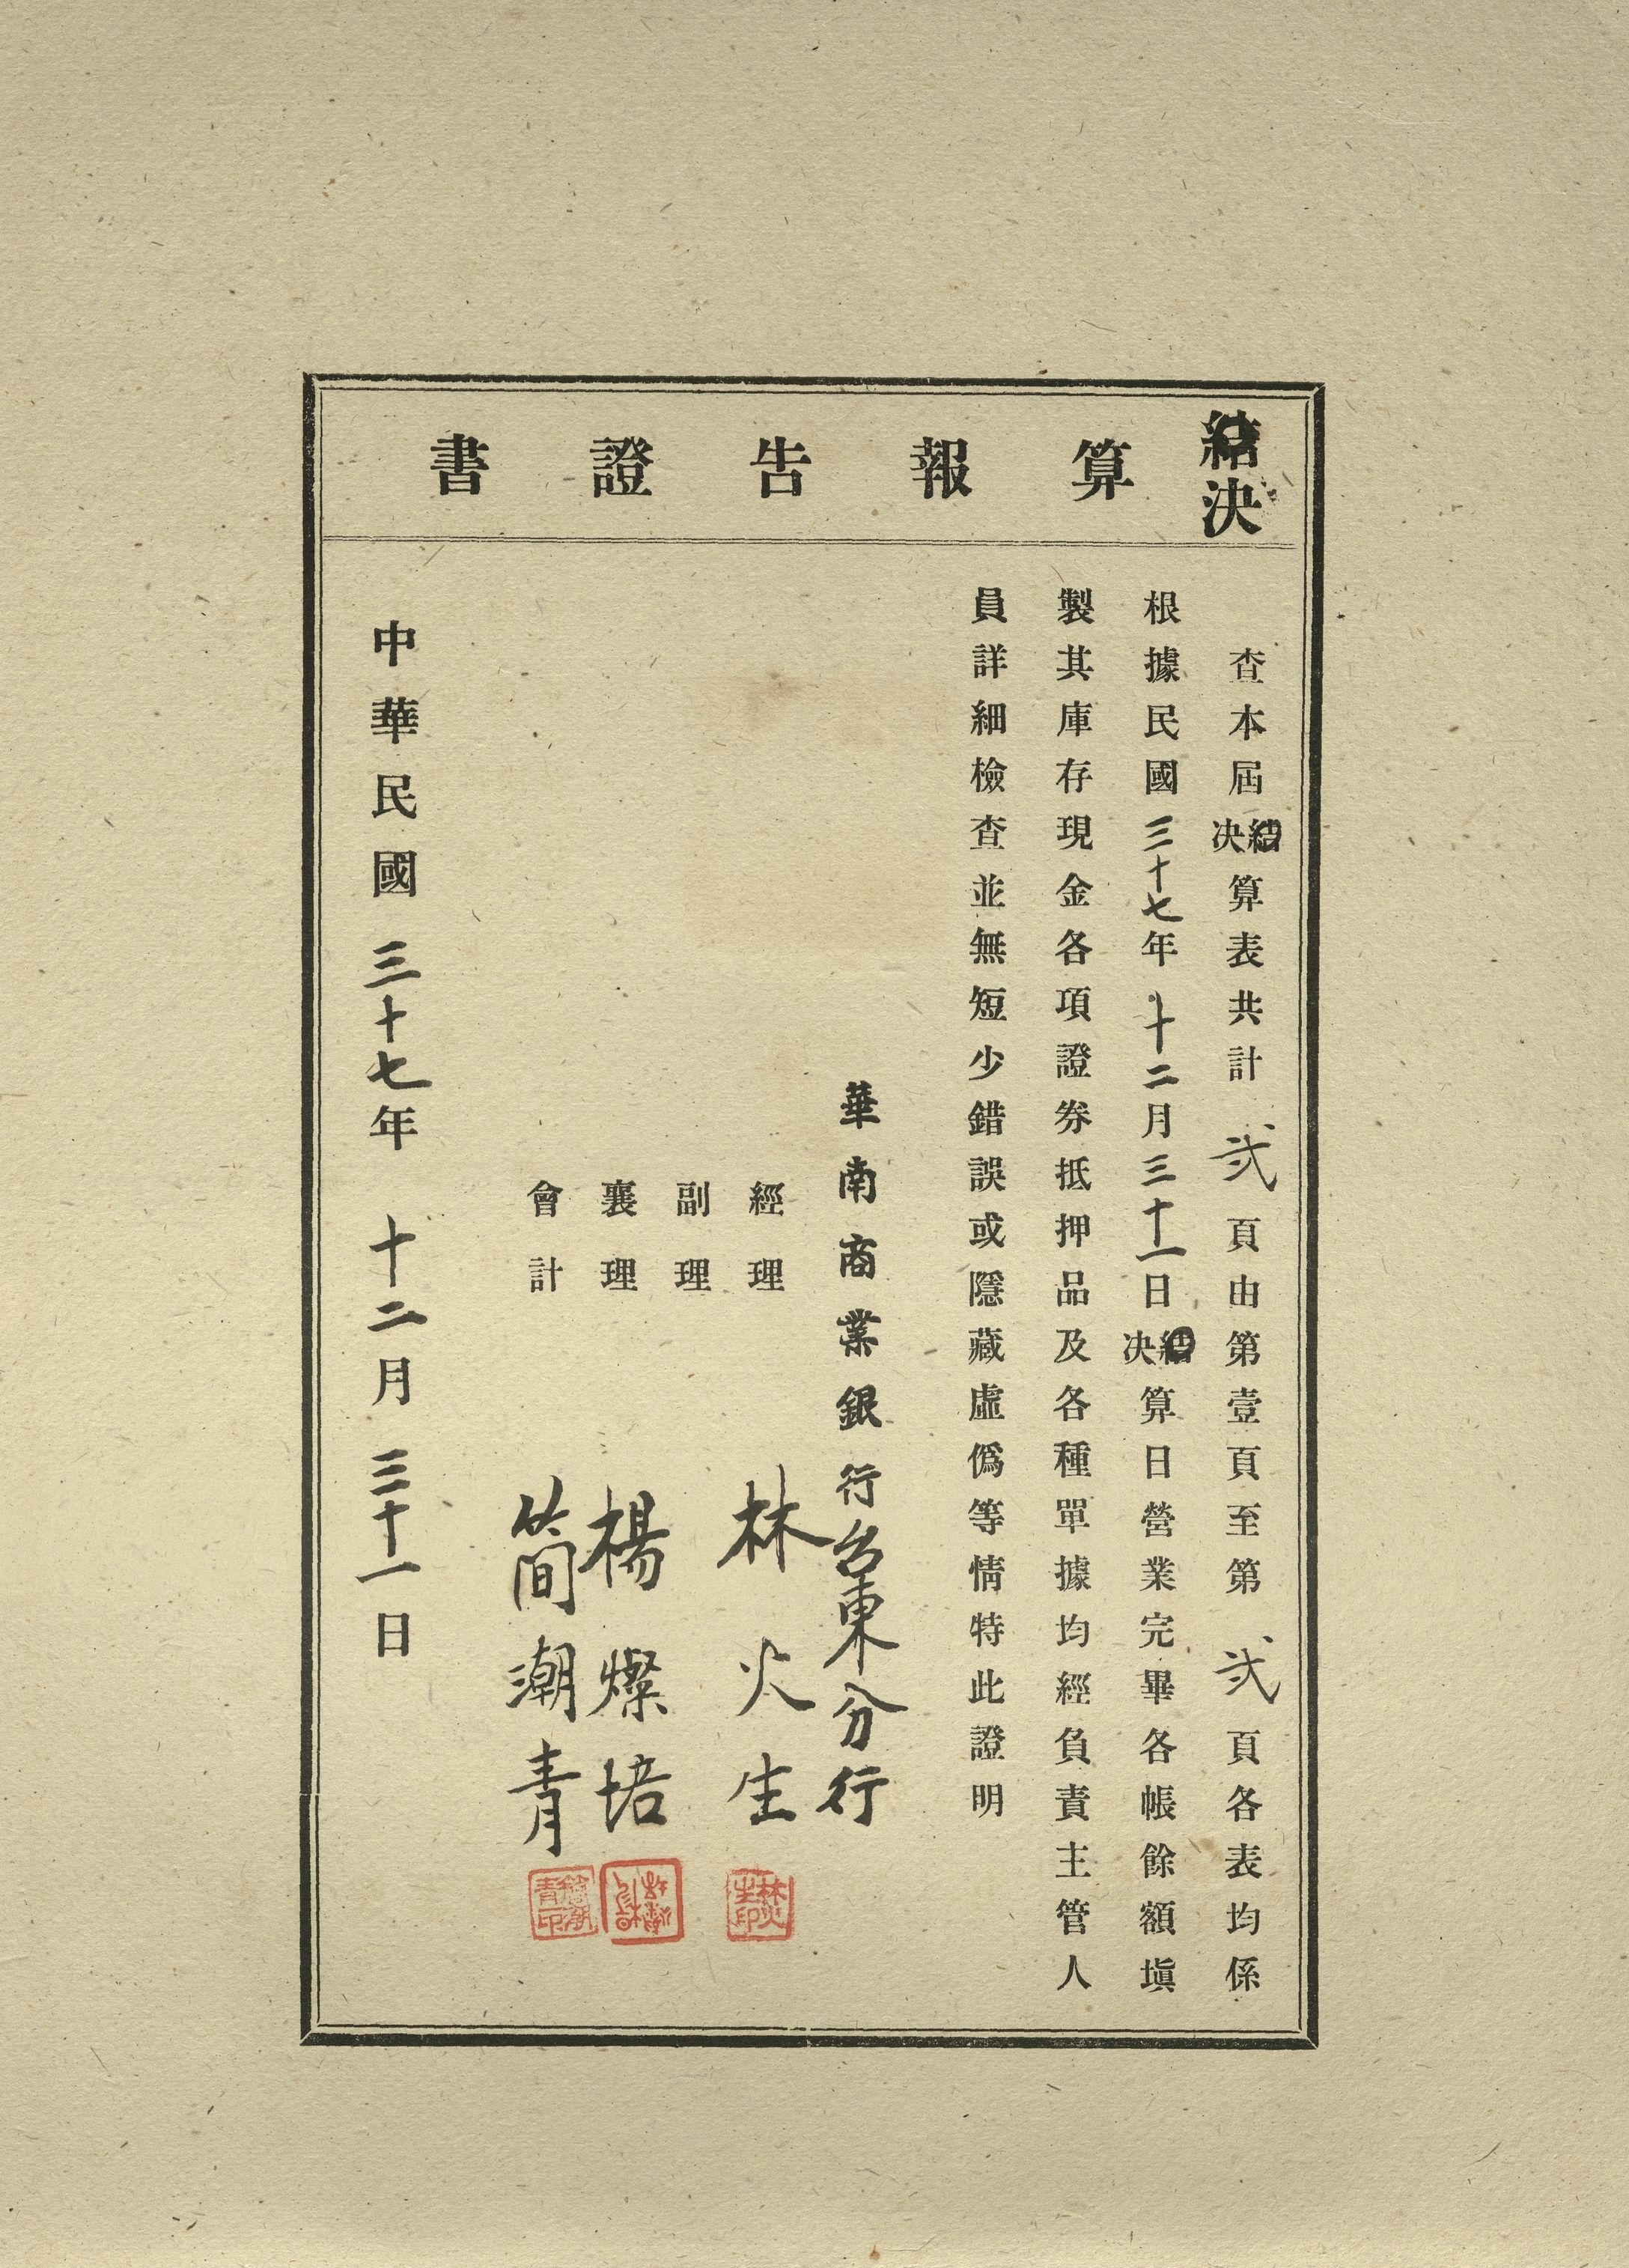 結決算報告證書
查本屆結決算表共計弍頁由第壹頁至第弍頁各表均係
根據民國三十七年十二月三十一日結決算日營業完畢各帳餘額塡
製其庫存現金各項證券抵押品及各種單據均經負責主管人
員詳細檢查並無短少錯誤或隱藏虛僞等情特此證明
華南商業銀行台東分行
經理 林火生
林火生印
副理
襄理 楊燦培
會計 簡潮青
簡潮青印
中華民國三十七年十二月三十一日